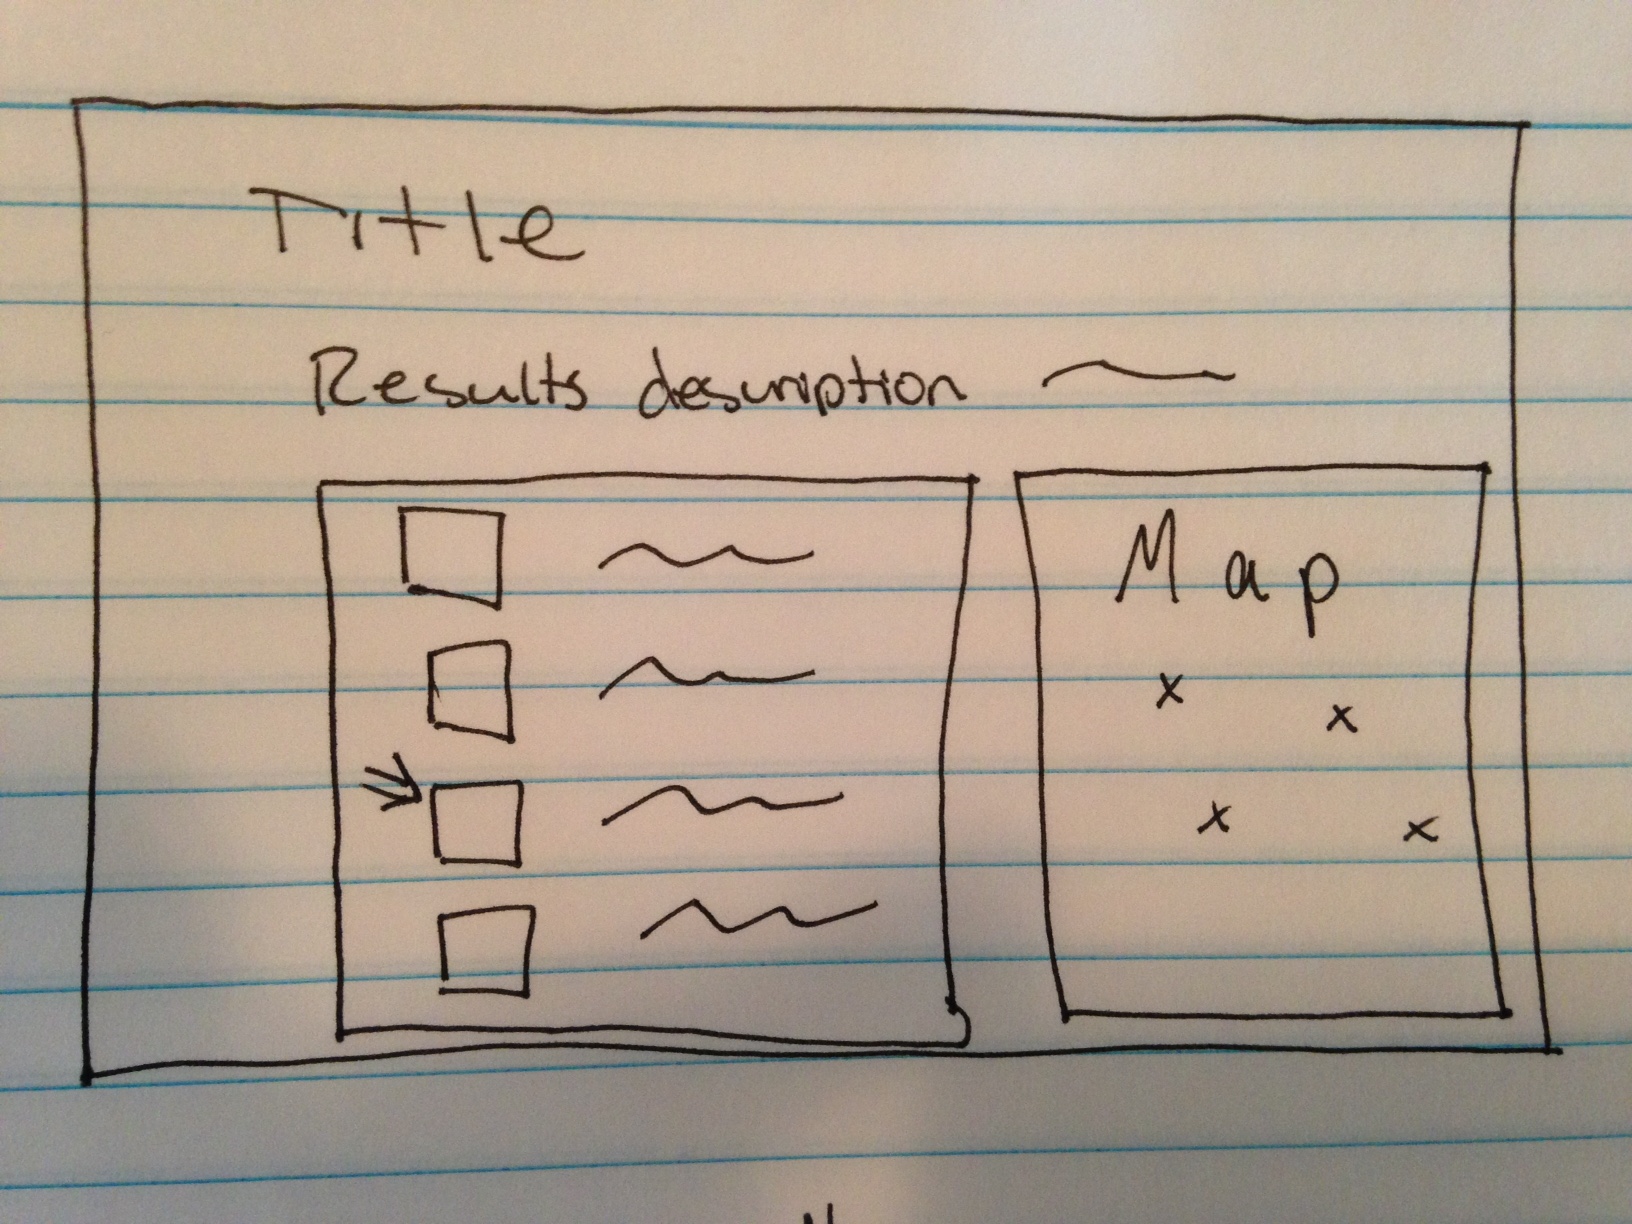 Title
Results description
Map
x
x
x
x